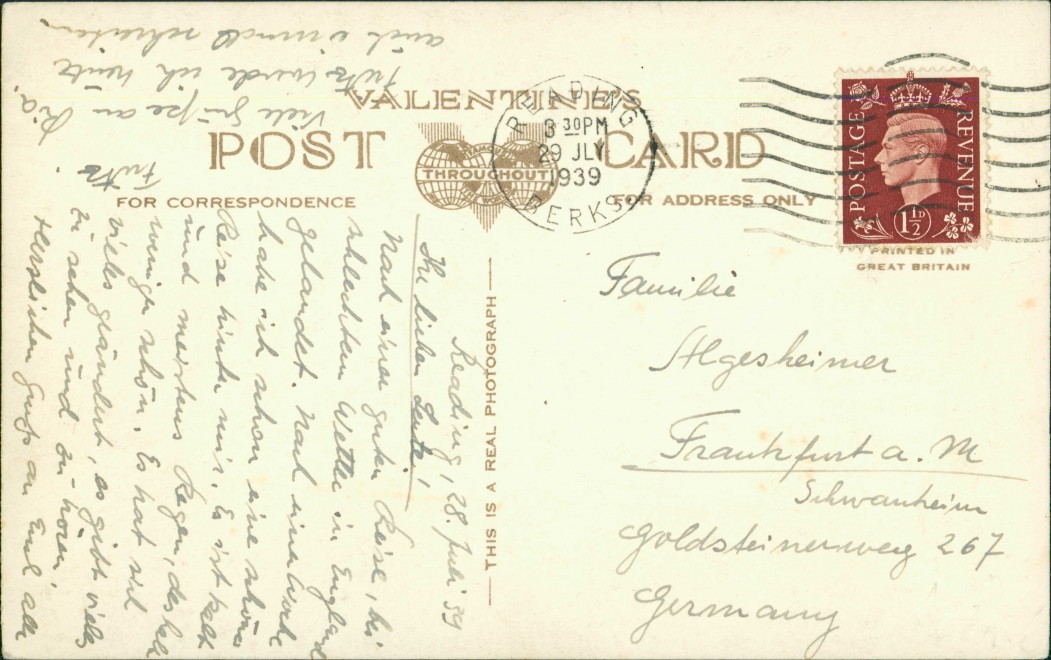 VALENTINE'S
POST CARD
FAMOUS
THROUGHOUT
THE WORLD
FOR CORRESPONDENCE
FOR ADDRESS ONLY
READING
3 30PM
29 JLY
1939
BERKS.
POSTAGE
REVENUE
1½D
PRINTED IN
GREAT BRITAIN
THIS IS A REAL PHOTOGRAPH
Familie
Algesheimer
Frankfurt a. M
Schwanheim
Goldsteinerweg 267
Germany
Reading, 28. Juli 39
Ihr lieben Leute,
Nach einer guten Reise, bei
schlechten Wetter in England
gelandet. Nach einer Woche
habe ich schon eine schöne
Reise hinter mir. Es ist kalt
und meistens Regen, deshalb
weniger schön. Es hat sich
vieles geändert, es gibt vieles
zu sehen und zu hören.
Herzlichen Gruß an Euch alle
Fritz.
Viele Grüße an
Fritz werde ich heute
auch einmal schreiben.